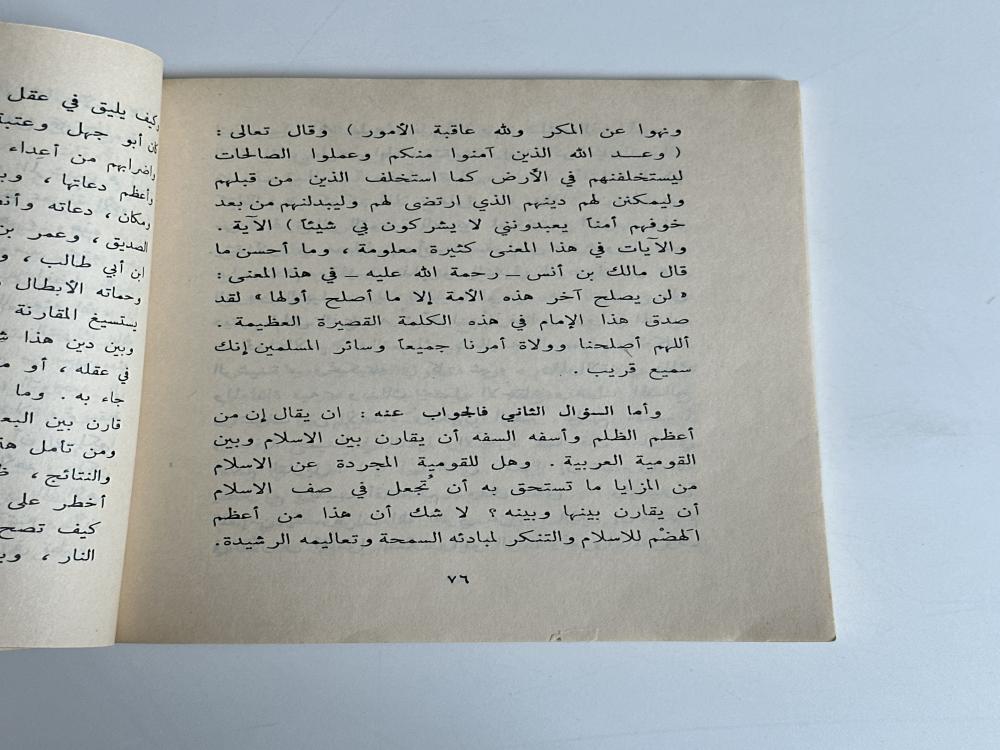 ونهوا عن المنكر ولله عاقبة الأمور ) وقال تعالى :
( وعـــد الله الذين آمنوا منكم وعملوا الصالحات
ليستخلفنهم في الأرض كما استخلف الذين من قبلهم
وليمكنن لهم دينهم الذي ارتضى لهم وليبدلنهم من بعد
خوفهم أمناً يعبدونني لا يشركون بي شيئاً ) الآية .
والآيات في هذا المعنى كثيرة معلومة ، وما أحسن ما
قال مالك بن أنس – رحمة الله عليه – في هذا المعنى :
« لن يصلح آخر هذه الأمة إلا ما أصلح أولها » لقد
صدق هذا الإمام في هذه الكلمة القصيرة العظيمة .
أللهم أصلحنا وولاة أمرنا جميعاً وسائر المسلمين إنك
سميع قريب . .
وأما السؤال الثاني فالجواب عنه : ان يقال إن من
أعظم الظلم وأسفه السفه أن يقارن بين الاسلام وبين
القومية العربية . وهل للقومية المجردة عن الاسلام
من المزايا ما تستحق به أن تُجعل في صف الاسلام
أن يقارن بينها وبينه ؟ لا شك أن هذا من أعظم
الهضْم للاسلام والتنكر لمبادئه السمحة وتعاليمه الرشيدة.
٧٦
وكيف يليق في عقل
كان أبو جهل وعتبة
واضرابهم من أعداء
وأعظم دعاتها ،
ومكان ، دعاته
الصديق ، وعمر بن
ابن أبي طالب ،
وحماته الأبطال
يستسيغ المقارنة
وبين دين هذا
في عقله ، أو
جاء به . وما
قارن بين
ومن تأمل
والنتائج ،
أخطر على
كيف تصح
النار ،